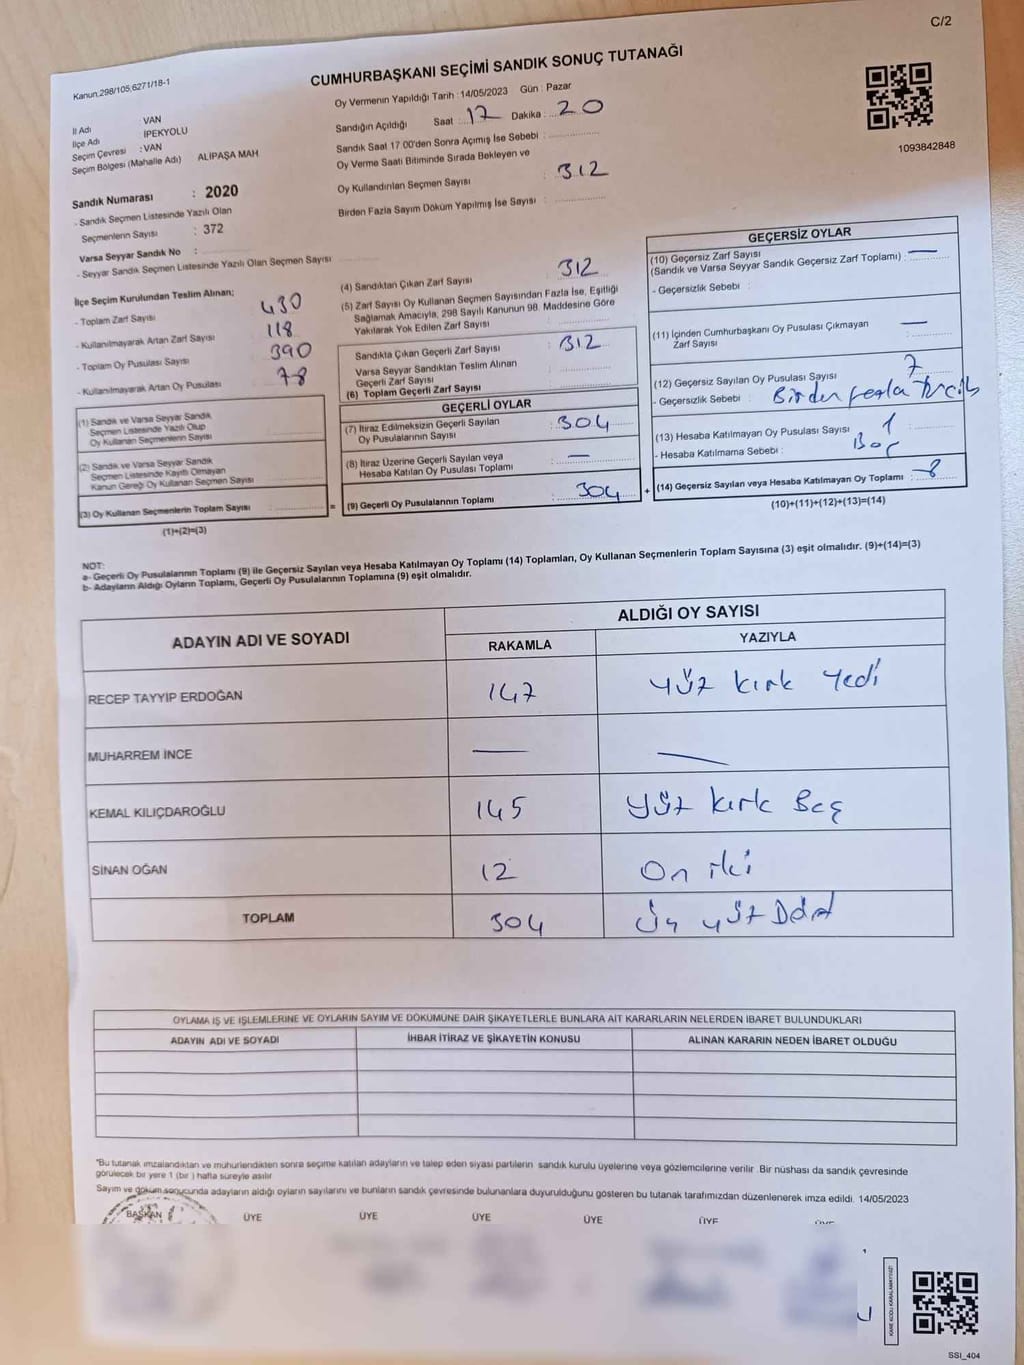 C/2
Kanun,298/105,6271/18-1
CUMHURBAŞKANI SEÇİMİ SANDIK SONUÇ TUTANAĞI
İl Adı VAN
İlçe Adı İPEKYOLU
Seçim Çevresi : VAN
Seçim Bölgesi (Mahalle Adı) ALİPAŞA MAH
Sandık Numarası : 2020
- Sandık Seçmen Listesinde Yazılı Olan
Seçmenlerin Sayısı : 372
Varsa Seyyar Sandık No :
- Seyyar Sandık Seçmen Listesinde Yazılı Olan Seçmen Sayısı
Oy Vermenin Yapıldığı Tarih : 14/05/2023 Gün : Pazar
Sandığın Açıldığı Saat : 17 Dakika : 20
Sandık Saat 17.00'den Sonra Açmış İse Sebebi :
Oy Verme Saati Bitiminde Sırada Bekleyen ve
Oy Kullandırılan Seçmen Sayısı : 312
Birden Fazla Sayım Döküm Yapılmış İse Sayısı :
1093842848
İlçe Seçim Kurulundan Teslim Alınan;
- Toplam Zarf Sayısı 430
- Kullanılmayarak Artan Zarf Sayısı 118
- Toplam Oy Pusulası Sayısı 390
- Kullanılmayarak Artan Oy Pusulası 78
(1) Sandık ve Varsa Seyyar Sandık
Seçmen Listesinde Yazılı Olup
Oy Kullanan Seçmenlerin Sayısı
(2) Sandık ve Varsa Seyyar Sandık
Seçmen Listesinde Kayıtlı Olmayan
Kanun Gereği Oy Kullanan Seçmen Sayısı
(3) Oy Kullanan Seçmenlerin Toplam Sayısı =
(1)+(2)=(3)
(4) Sandıktan Çıkan Zarf Sayısı 312
(5) Zarf Sayısı Oy Kullanan Seçmen Sayısından Fazla İse, Eşitliği
Sağlamak Amacıyla, 298 Sayılı Kanunun 98. Maddesine Göre
Yakılarak Yok Edilen Zarf Sayısı
Sandıkta Çıkan Geçerli Zarf Sayısı : 312
Varsa Seyyar Sandıktan Teslim Alınan
Geçerli Zarf Sayısı
(6) Toplam Geçerli Zarf Sayısı
GEÇERLİ OYLAR
(7) İtiraz Edilmeksizin Geçerli Sayılan
Oy Pusulalarının Sayısı : 304
(8) İtiraz Üzerine Geçerli Sayılan veya
Hesaba Katılan Oy Pusulası Toplamı : —
(9) Geçerli Oy Pusulalarının Toplamı : 304 +
GEÇERSİZ OYLAR
(10) Geçersiz Zarf Sayısı
(Sandık ve Varsa Seyyar Sandık Geçersiz Zarf Toplamı) : —
- Geçersizlik Sebebi :
(11) İçinden Cumhurbaşkanı Oy Pusulası Çıkmayan
Zarf Sayısı —
(12) Geçersiz Sayılan Oy Pusulası Sayısı 7
- Geçersizlik Sebebi : Birden fazla Tercih
(13) Hesaba Katılmayan Oy Pusulası Sayısı : 1
- Hesaba Katılmama Sebebi : Boş
(14) Geçersiz Sayılan veya Hesaba Katılmayan Oy Toplamı : 8
(10)+(11)+(12)+(13)=(14)
NOT:
a- Geçerli Oy Pusulalarının Toplamı (9) ile Geçersiz Sayılan veya Hesaba Katılmayan Oy Toplamı (14) Toplamları, Oy Kullanan Seçmenlerin Toplam Sayısına (3) eşit olmalıdır. (9)+(14)=(3)
b- Adayların Aldığı Oyların Toplamı, Geçerli Oy Pusulalarının Toplamına (9) eşit olmalıdır.
ADAYIN ADI VE SOYADI ALDIĞI OY SAYISI
RAKAMLA YAZIYLA
RECEP TAYYİP ERDOĞAN 147 yüz kırk yedi
MUHARREM İNCE — —
KEMAL KILIÇDAROĞLU 145 yüz kırk Beş
SİNAN OĞAN 12 On iki
TOPLAM 304 Üç yüz Dört
OYLAMA İŞ VE İŞLEMLERİNE VE OYLARIN SAYIM VE DÖKÜMÜNE DAİR ŞİKAYETLERLE BUNLARA AİT KARARLARIN NELERDEN İBARET BULUNDUKLARI
ADAYIN ADI VE SOYADI İHBAR İTİRAZ VE ŞİKAYETİN KONUSU ALINAN KARARIN NEDEN İBARET OLDUĞU
*Bu tutanak imzalandıktan ve mühürlendikten sonra seçime katılan adayların ve talep eden siyasi partilerin sandık kurulu üyelerine veya gözlemcilerine verilir. Bir nüshası da sandık çevresinde
görülecek bir yere 1 (bir) hafta süreyle asılır
Sayım ve döküm sonucunda adayların aldığı oyların sayılarını ve bunların sandık çevresinde bulunanlara duyurulduğunu gösteren bu tutanak tarafımızdan düzenlenerek imza edildi. 14/05/2023
BAŞKAN ÜYE ÜYE ÜYE ÜYE ÜYE ÜYE
KARE KODU KARALAMAYINIZ!
SSI_404